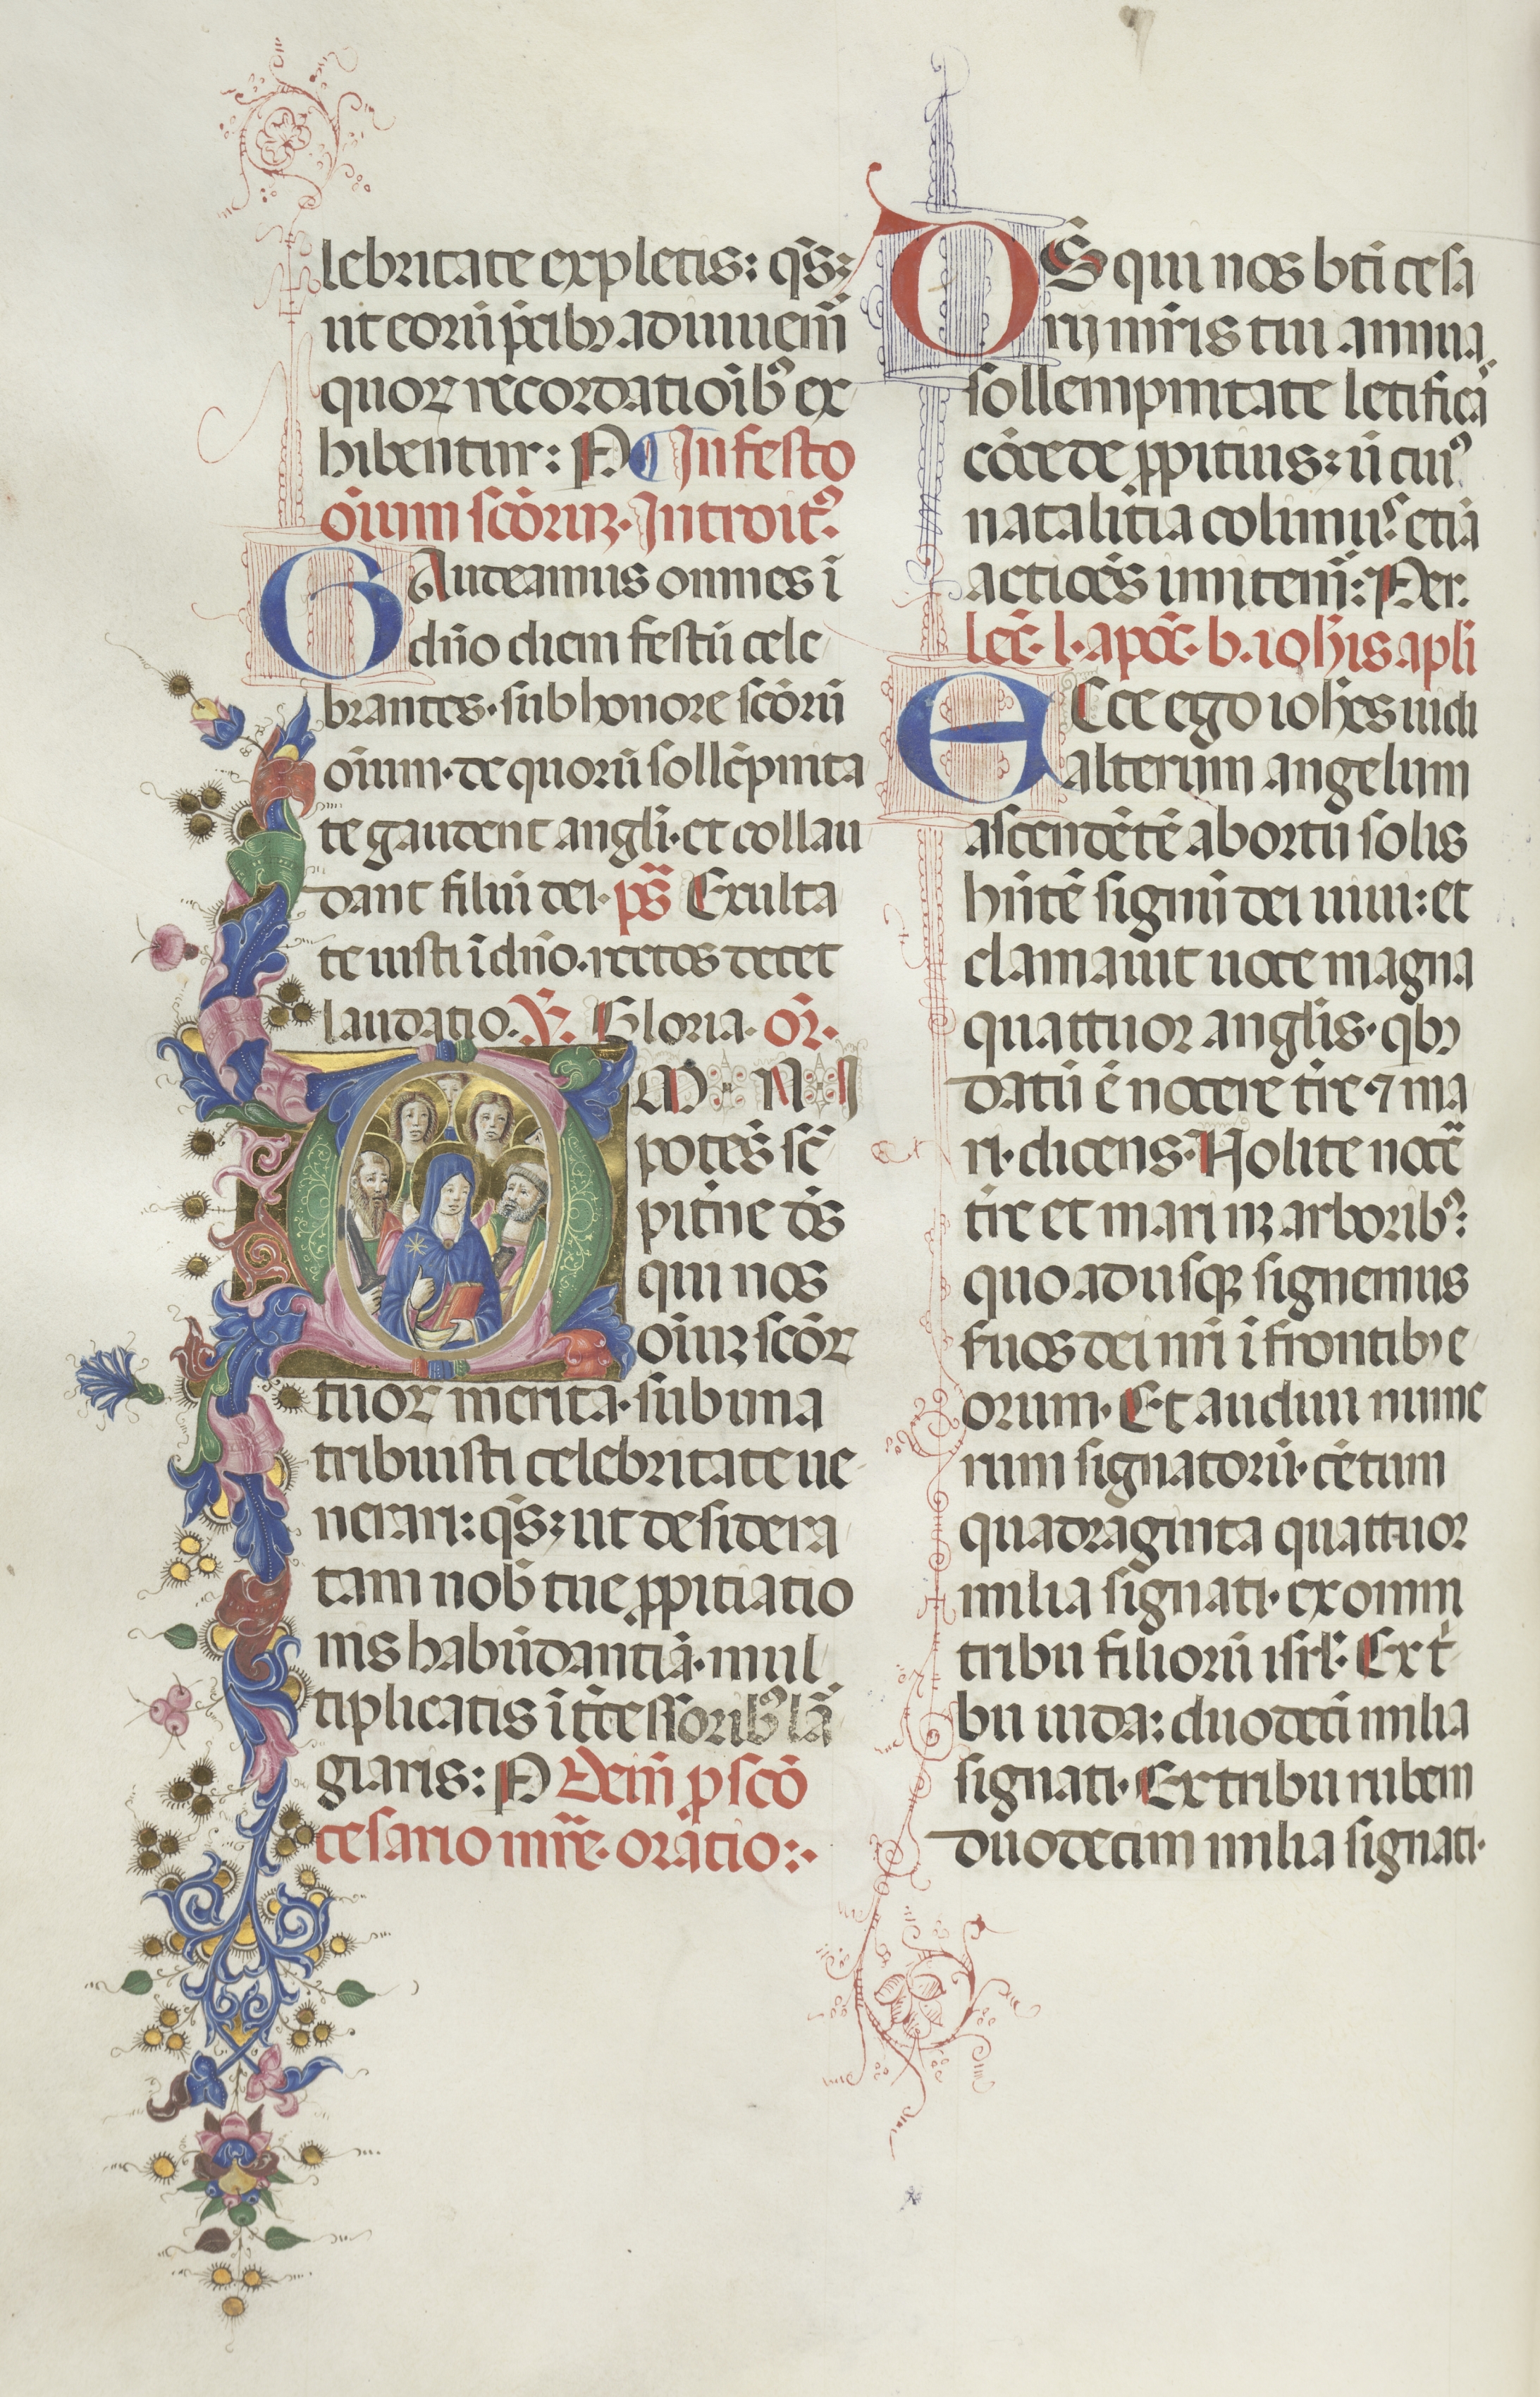 lebritate expletis: q̄s:
ut eorū p̄cibꝫ adiuuem̄
quoꝝ recordatioībꝰ ex
hibentur: P ¶ In festo
oīum scōruꝝ. Introitꝰ.
GAudeamus omnes ī
dn̄o diem festū cele
brantes. sub honore scōrū
oīum. de quorū sollēpnita
te gaudent angl̄i. et collau
dant filiū dei. p̄s Exulta
te iusti ī dn̄o. rectos decet
laudatio. ℣. Gloria. or̄.
OMNI
potēs sē
pit̄ne d̄s
qui nos
oīuꝫ scōꝝ
tuoꝝ merita. sub una
tribuisti celebritate ue
nerari: q̄s: ut desidera
tam nob̄ tue ꝓpitiatio
nis habūdantiā. mul
tiplicatis īt̄cessoribꝰ lā
giaris: P Deīn p scō
cesario mr̄e. oratio:.
DS̄ qui nos bt̄i cesa
rij mr̄is tui annua
sollempnitate letificā
cōcede ꝓpitius: ū cuiꝰ
natalitia colimꝰ. etiā
actiōes imitem̄: Per.
lec̄. l. apoc̄. b. ioh̄is apl̄i
ECce ego ioh̄es uidi
alterum angelum
ascendētē ab ortu solis
hn̄tē signū dei uiui: et
clamauit uoce magna
quattuor angl̄is. qbꝫ
datū ē nocere t̄re. ⁊ ma
ri. dicens. Nolite nocē
t̄re et mari neqꝫ arboribꝰ:
quo adusqꝫ signemus
s̄uos dei nr̄i ī frontibꝫ e
orum. Et audiui nume
rum signatorū. cētum
quadraginta quattuor
milia signati. ex omni
tribu filiorū isrl̄. Ex t̄
bu iuda: duodecī milia
signati. Ex tribu ruben
duodecim milia signati.